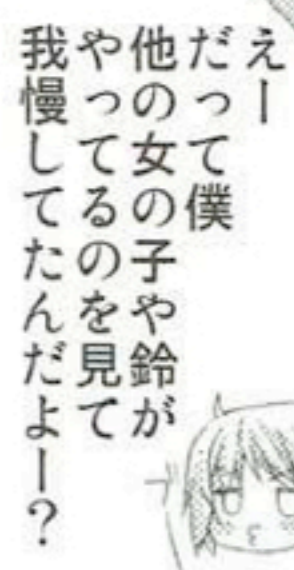 えー
だって僕
他の女の子や鈴が
やってるのを見て
我慢してたんだよー？